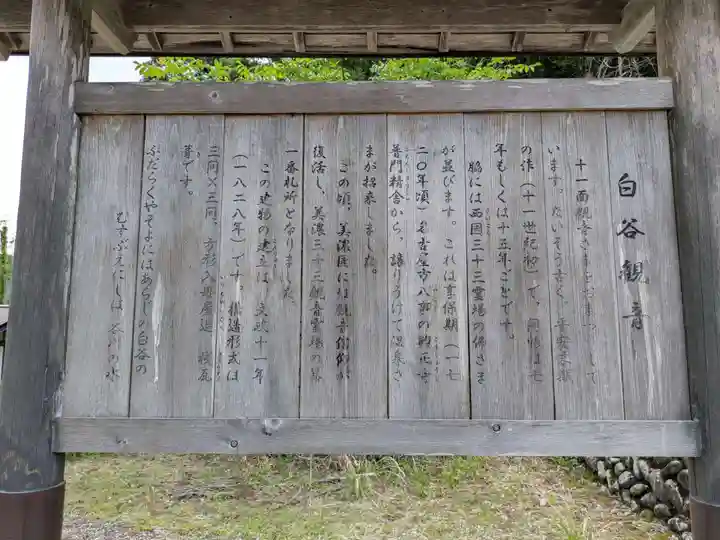 白谷観音
十一面観音さまをおまつりして
います。たいそう古く、平安末期
の作(十一世紀初)で、開帳は七
年もしくは十五年ごとです。
脇には西国三十三霊場の佛さま
が並びます。これは享保期(一七
二〇年頃)名古屋市八事の
普門精舎から、譲りうけて
まが招来しました。
この頃、美濃国には観音信仰が
復活し、美濃三十三観音霊場の第
一番札所となりました。
この建物の建立は、文政十一年
(一八二八年)です。構造形式は
三間×三間、方形入母屋造 桟瓦
葺です。
ふだらくやそよにはあらじの白谷の
むすぶえにしは 谷川の水